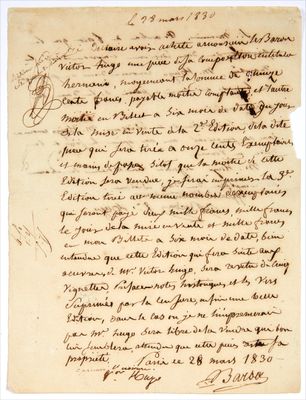 Le 28 mars 1830
Je déclare avoir acheté à monsieur le Baron
Victor Hugo une pièce de sa composition intitulée
hernani, moyennant la somme de quinze
cents francs payable moitié comptant et l'autre
moitié en Billet à Six mois de date du jour
de la mise en vente de la 2e Edition, de la dite
pièce qui sera tirée à onze cents Exemplaires
et mains de passe. Sitôt que la moitié de cette
Edition sera vendue, je ferai imprimer la 3e
Edition tirée au même nombre d'exemplaires
qui seront payé deux mille francs, mille francs
le jour de la mise en vente et mille francs
en mon Billet à Six mois de date bien
entendu que cette Edition qui fera suite aux
œuvres de Mr Victor hugo, sera revêtue de cinq
Vignettes notes historiques et les Vers
Supprimés par la Censure, enfin une belle
Edition, dans le cas où je ne l'imprimerais
pas Mr hugo sera libre de la vendre que bon
lui semblera attendu que cette pièce est sa
propriété.
Paris ce 28 mars 1830
Vor Hugo
Barba